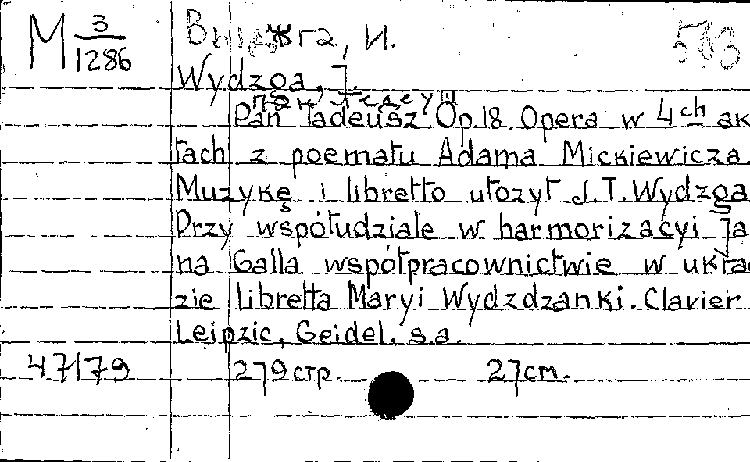 М 3/1286
Выджга, И. 503
Wydzga, J.
Пан Тадеуш
Pan Tadeusz Op.18. Opera w 4ch ak
tach z poematu Adama Mickiewicza
Muzykę i libretto ułożył J.T. Wydzga
Przy współudziale w harmonizacyi Ja
na Galla współpracownictwie w ukła
zie libretta Maryi Wydzdzanki. Clavier
Leipzic, Geidel. s.a.
47179 279 стр. 27 см.